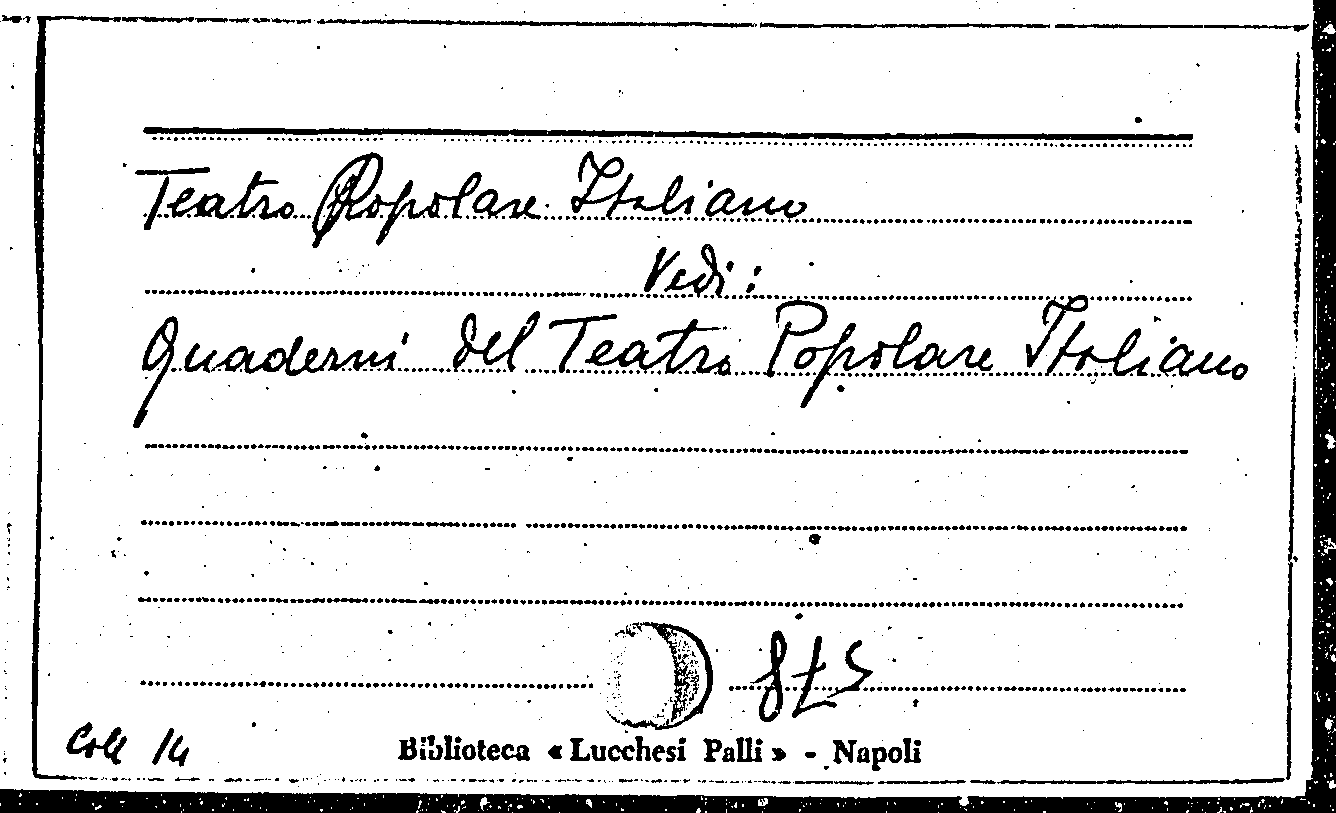 Teatro Popolare Italiano
Vedi:
Quaderni del Teatro Popolare Italiano
Coll 14
Biblioteca « Lucchesi Palli » - Napoli